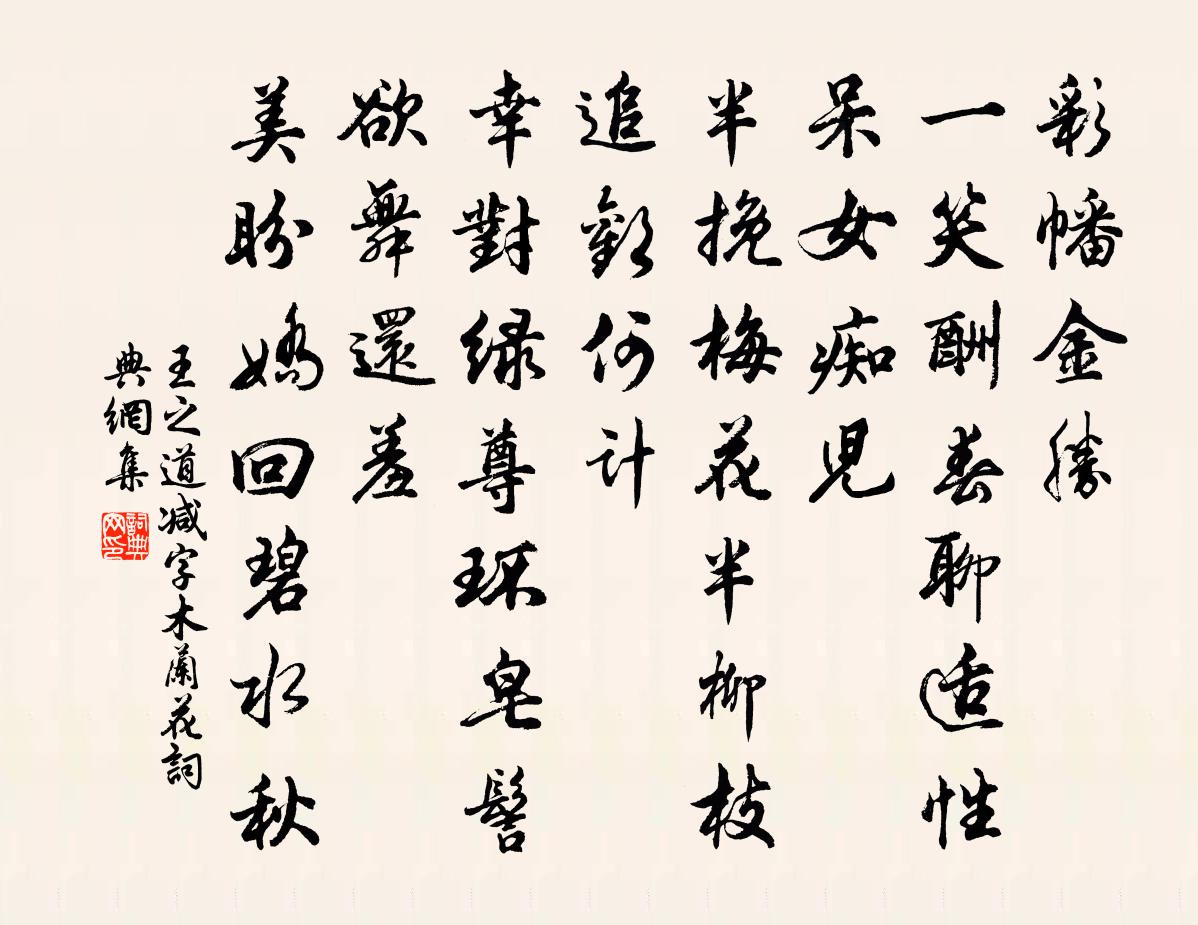 彩幡金勝
一笑酬春聊适性
呆女痴児
半挽梅花半柳枝
追歡何計
幸對緑尊環皂髻
欲舞還羞
美盼嬌回碧水秋
王之道减字木蘭花詞
典網集
詞典網印